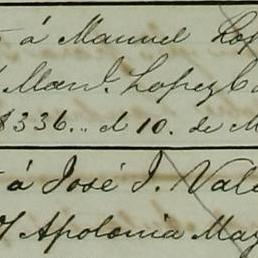 á Manuel Lop
Man¹. Lopez C
$336.. d 10. de M
á José I. Vale
Apolonia May